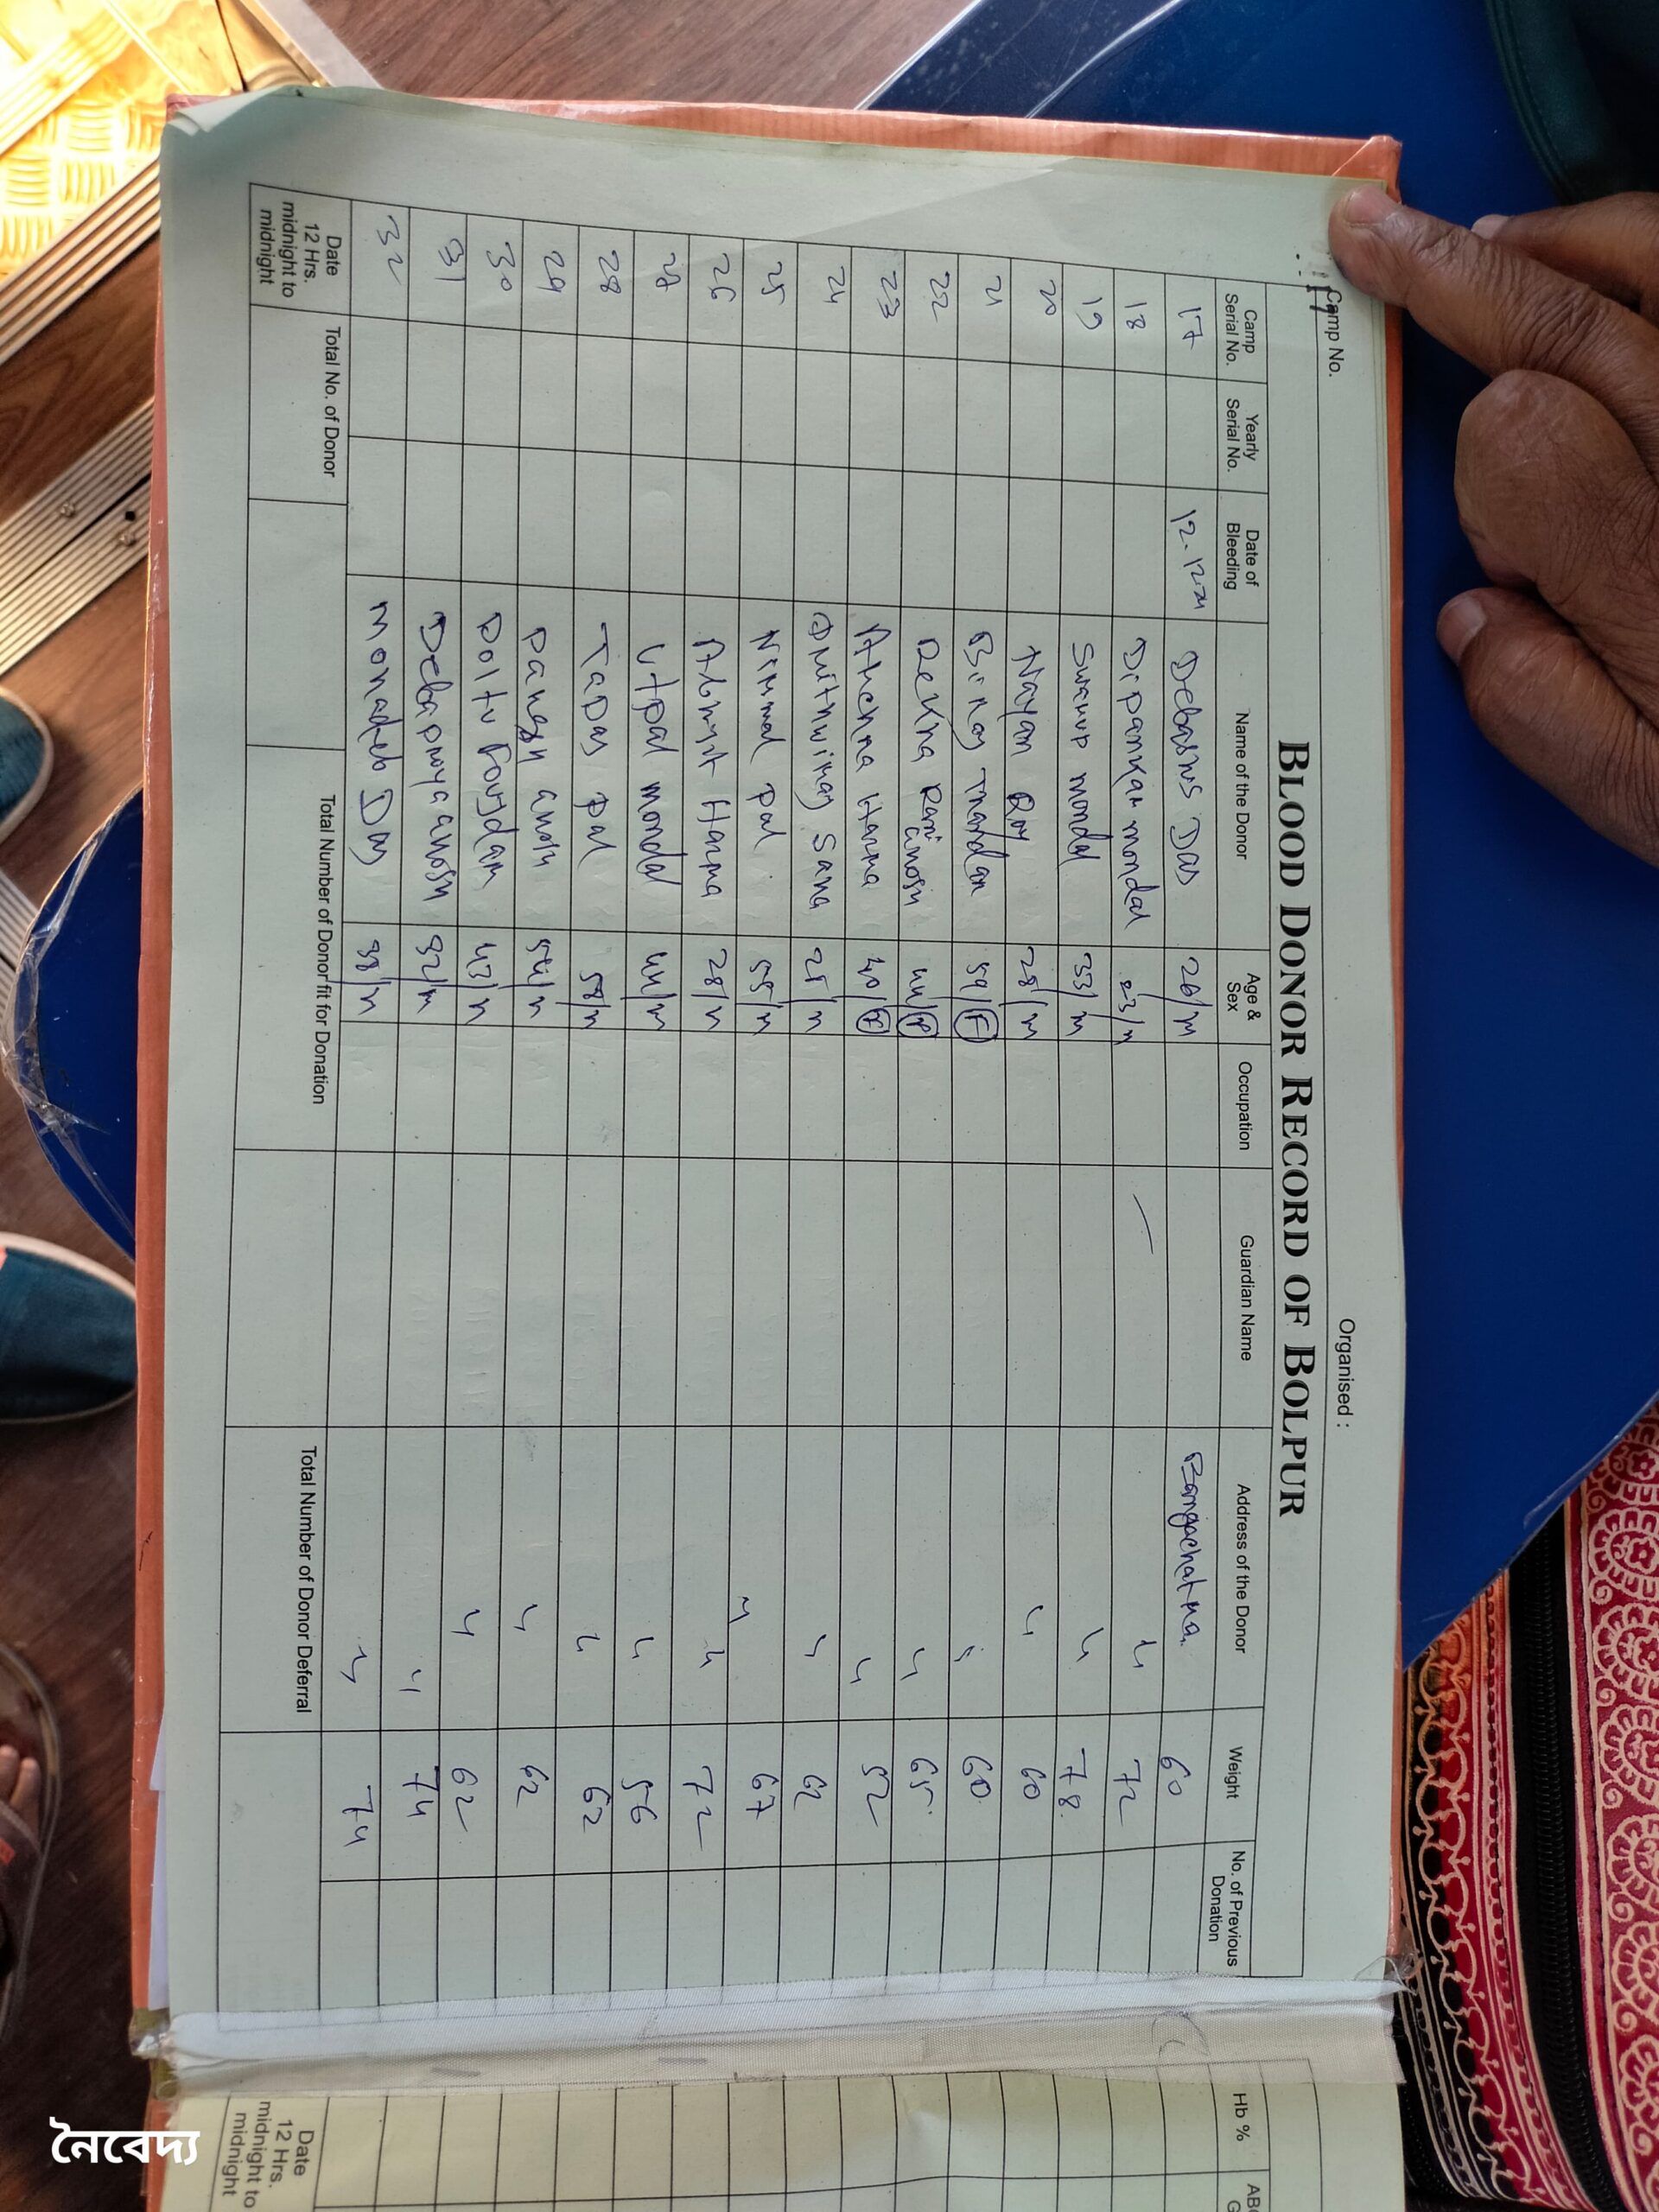 Camp No. Organised :
BLOOD DONOR RECORD OF BOLPUR
Camp Serial No. Yearly Serial No. Date of Bleeding Name of the Donor Age & Sex Occupation Guardian Name Address of the Donor Weight No. of Previous Donation
17 Debashis Das 26/M 60
18 Dipankar mondal 23/M 〃 72
19 Swarup mondal 33/M 〃 78
20 Nayan Roy 28/M 〃 60
21 59/F 〃 60
22 Rekha Rani 44/F 〃 65
23 40/F 〃 52
24 〃 62
25 Nirmal Pal 55/M 〃 67
26 28/M 〃 72
27 Utpal mondal 44/M 〃 56
28 Tapas pal 58/M 〃 62
29 54/M 〃 62
30 43/M 〃 62
31 32/M 〃 74
32 Das 38/M 〃 74
Date 12 Hrs. midnight to midnight Total No. of Donor Total Number of Donor fit for Donation Total Number of Donor Deferral
Hb %
Date 12 Hrs. midnight to midnight
নৈবেদ্য